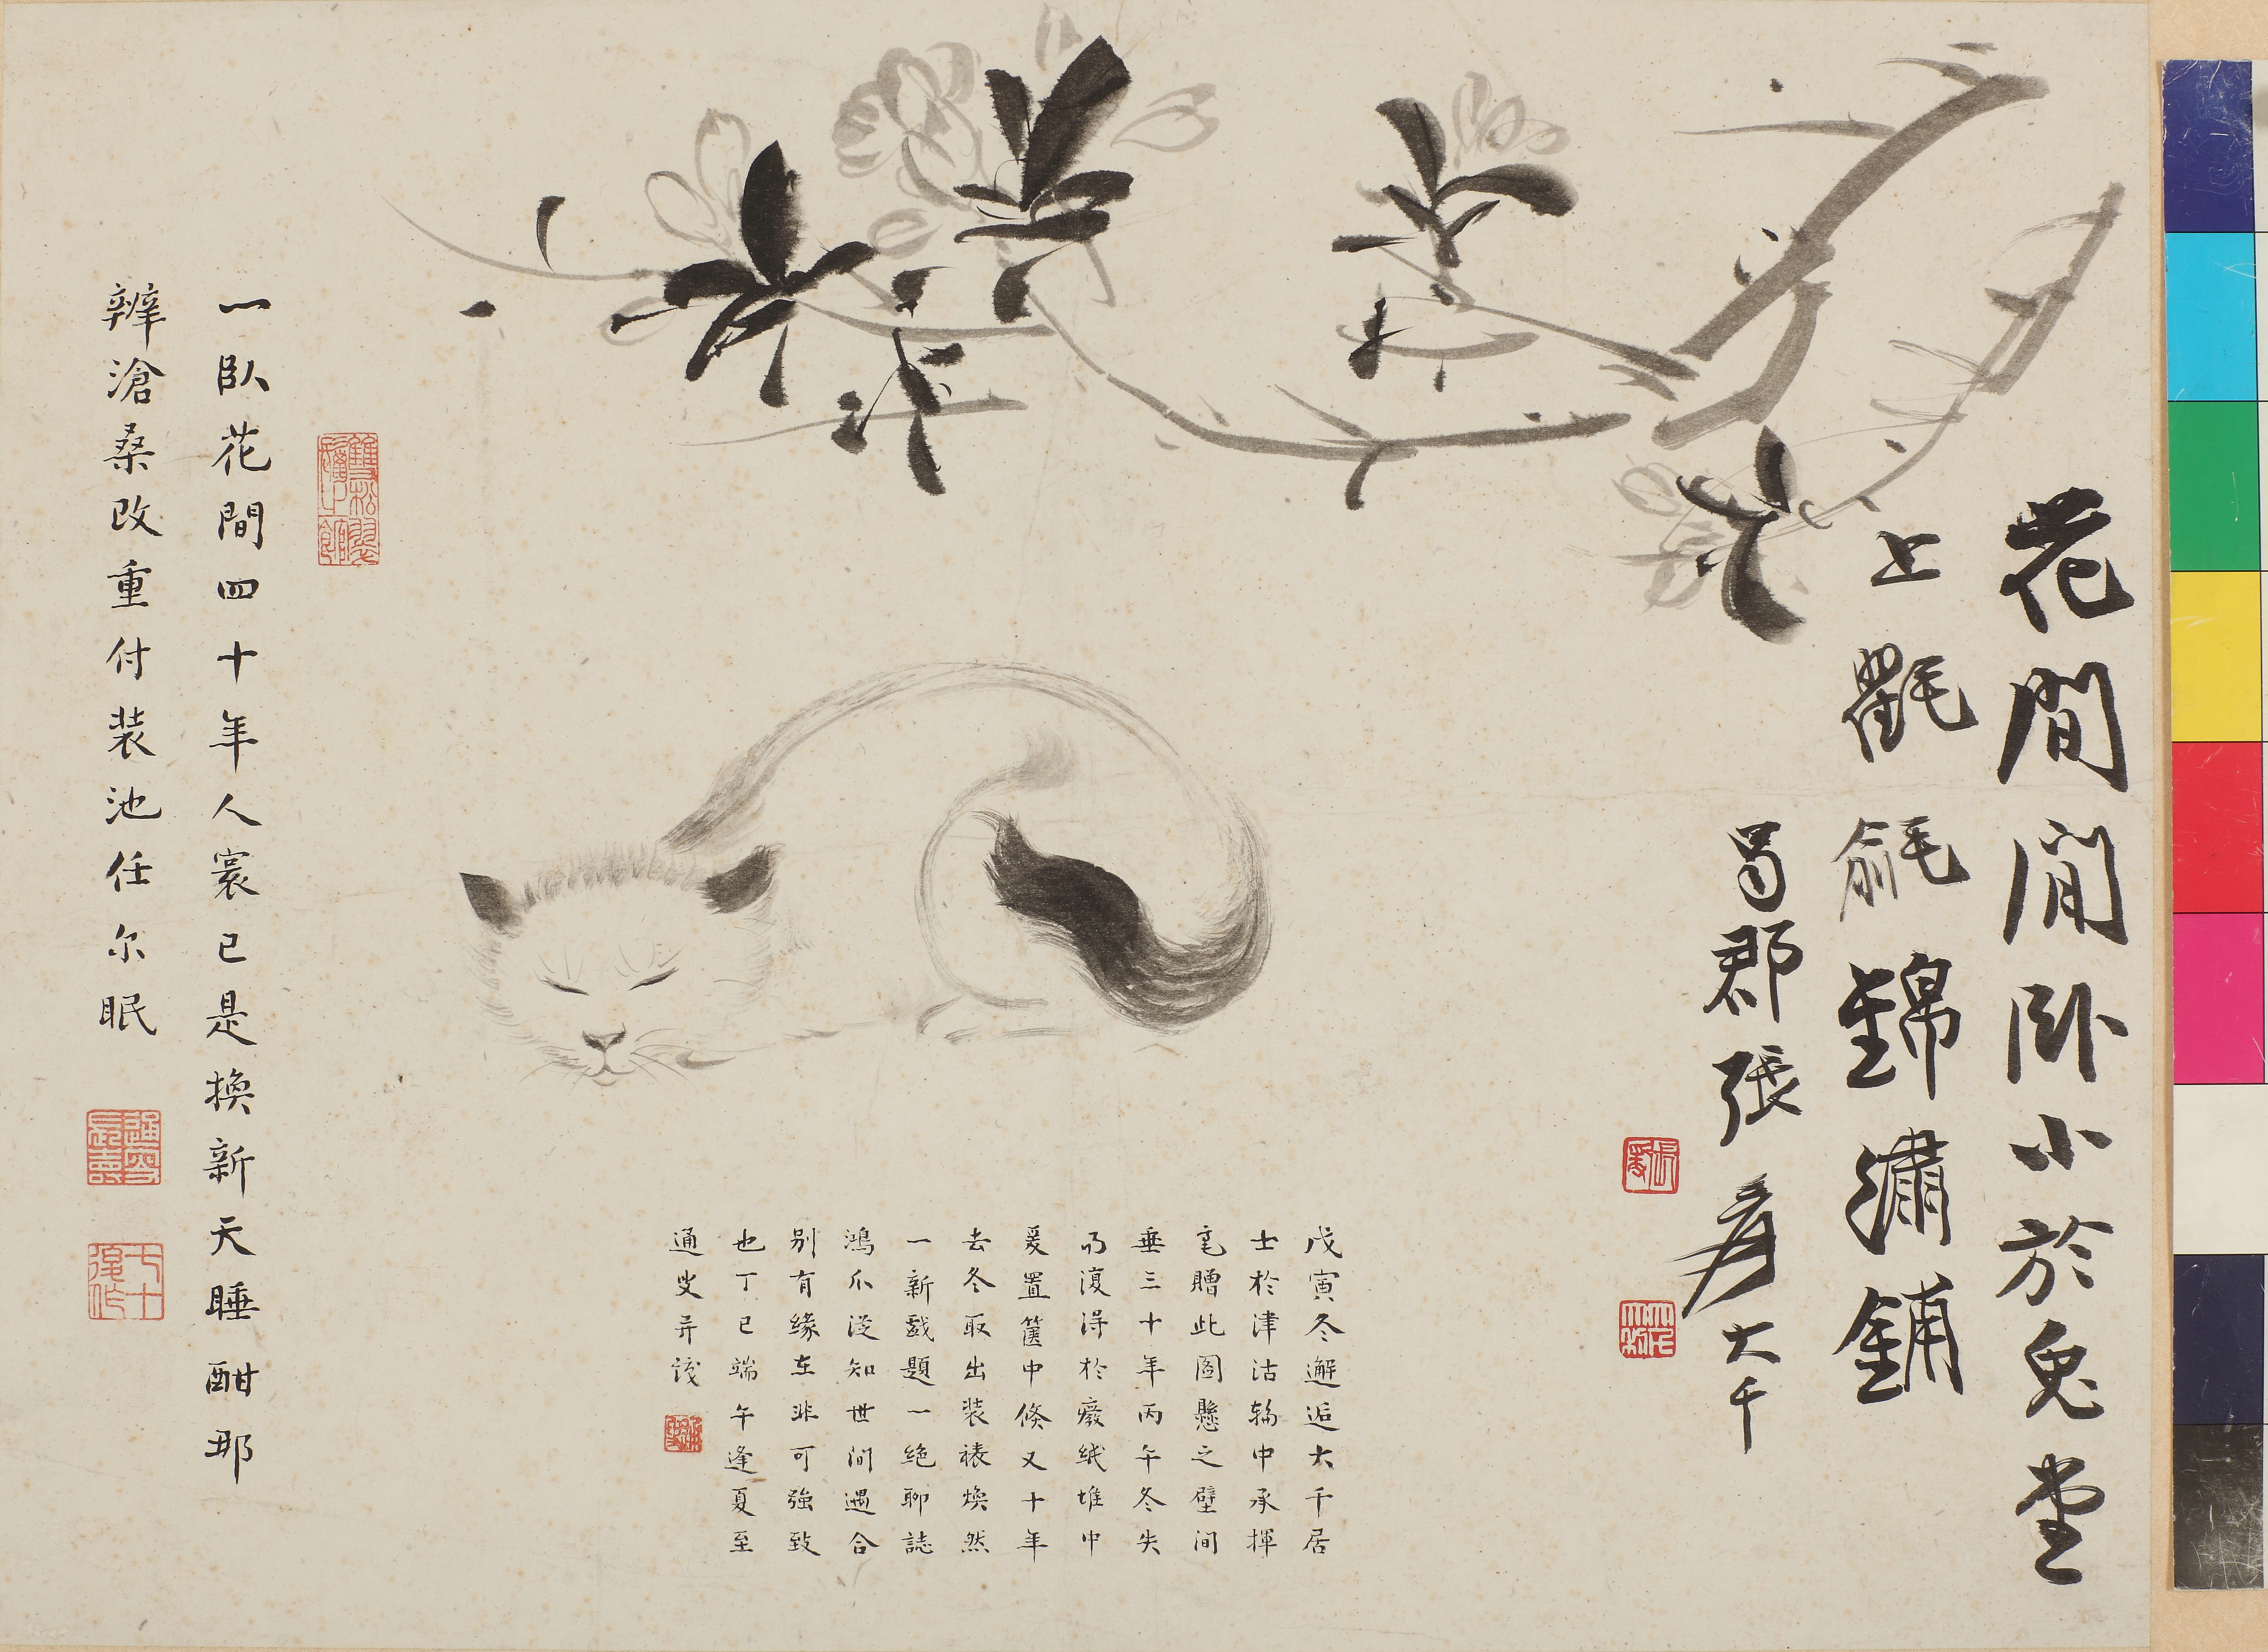 花間閒臥小於兔堂
上氍毹錦繡鋪
蜀郡張爰大千
戊寅冬邂逅大千居
士於津沽輪中承揮
毫贈此圖懸之壁間
垂三十年丙午冬失
而復得於廢紙堆中
爰置篋中倏又十年
去冬取出裝裱煥然
一新戲題一絕聊誌
鴻爪從知世間遇合
別有緣在非可強致
也丁巳端午逢夏至
通叟并識
一臥花間四十年人寰已是換新天睡酣那
辨滄桑改重付裝池任尔眠
七十後作